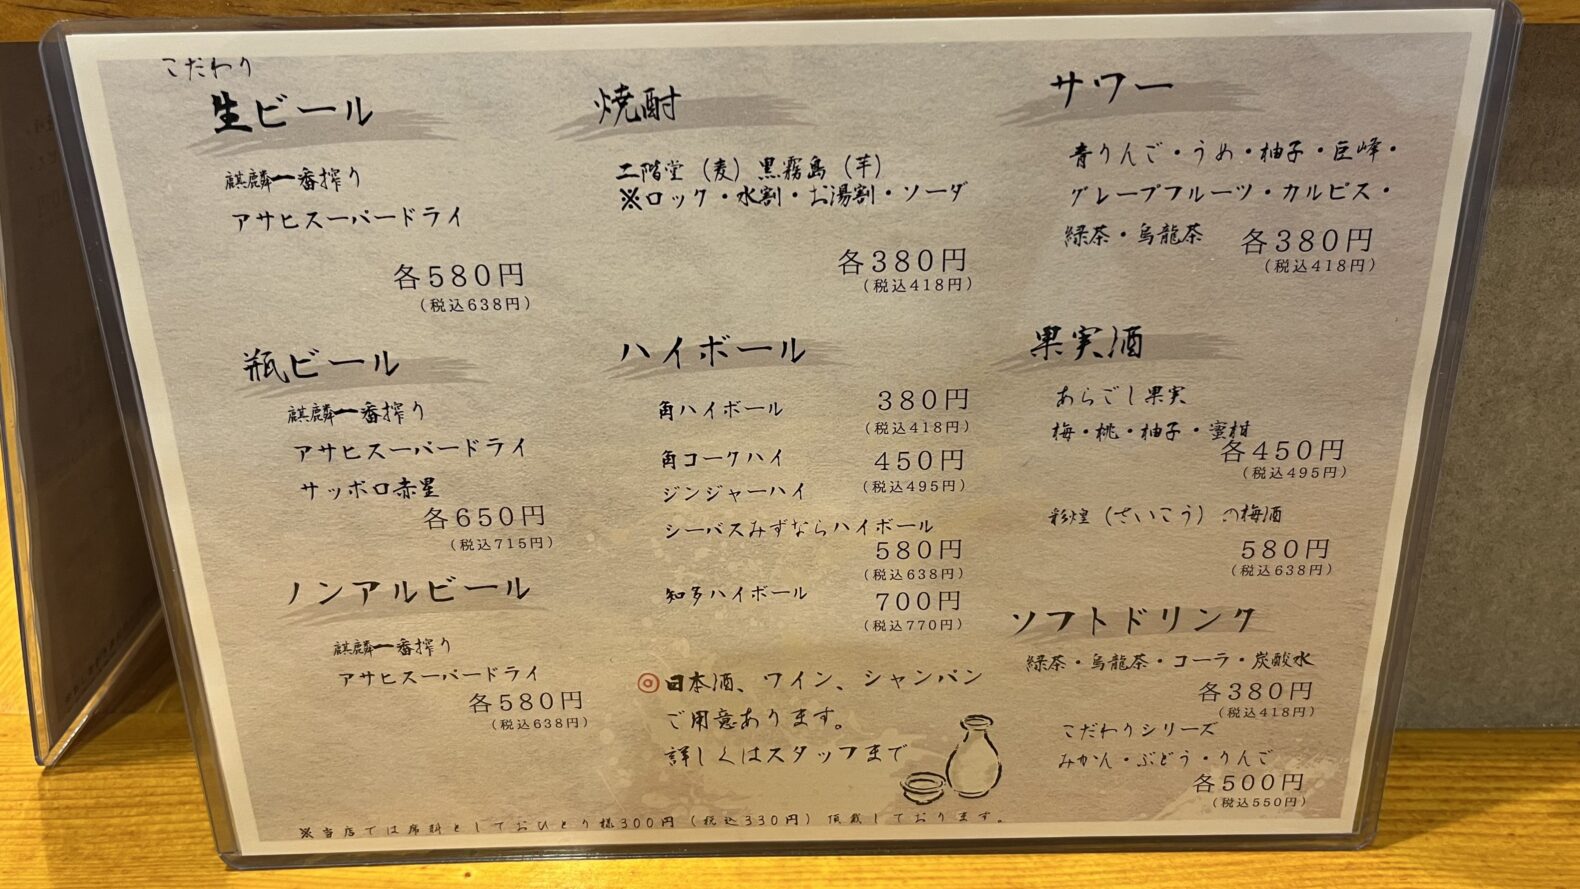 こだわり
生ビール
麒麟一番搾り
アサヒスーパードライ
各580円
(税込638円)
瓶ビール
麒麟一番搾り
アサヒスーパードライ
サッポロ赤星
各650円
(税込715円)
ノンアルビール
麒麟一番搾り
アサヒスーパードライ
各580円
(税込638円)
焼酎
二階堂（麦）黒霧島（芋）
※ロック・水割・お湯割・ソーダ
各380円
(税込418円)
ハイボール
角ハイボール 380円
(税込418円)
角コークハイ 450円
(税込495円)
ジンジャーハイ
シーバスみずならハイボール
580円
(税込638円)
知多ハイボール 700円
(税込770円)
◎日本酒、ワイン、シャンパン
ご用意あります。
詳しくはスタッフまで
サワー
青りんご・うめ・柚子・巨峰・
グレープフルーツ・カルピス・
緑茶・烏龍茶 各380円
(税込418円)
果実酒
あらごし果実
梅・桃・柚子・蜜柑
各450円
(税込495円)
彩煌（さいこう）の梅酒
580円
(税込638円)
ソフトドリンク
緑茶・烏龍茶・コーラ・炭酸水
各380円
(税込418円)
こだわりシリーズ
みかん・ぶどう・りんご
各500円
(税込550円)
※当店では席料としておひとり様300円（税込330円）頂戴しております。